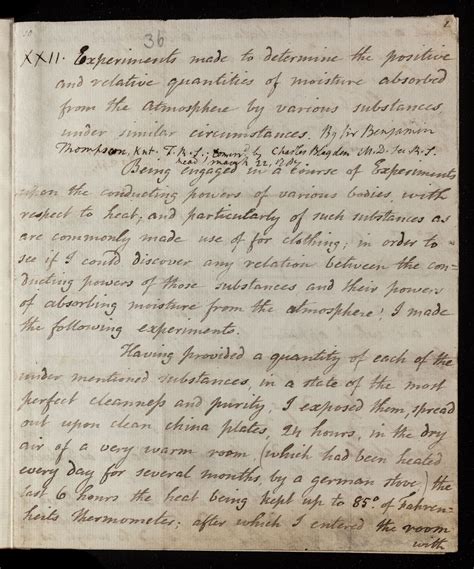 36
XXII. Experiments made to determine the positive
and relative quantities of moisture absorbed
from the atmosphere by various substances,
under similar circumstances. By Sir Benjamin
Thompson, Knt. F.R.S.; by Charles Blagden M.D. Sec. R.S.
read, march 22, 1787.
Being engaged in a course of Experiments
upon the conducting powers of various bodies, with
respect to heat, and particularly of such substances as
are commonly made use of for clothing; in order to
see if I could discover any relation between the con-
ducting powers of those substances and their powers
of absorbing moisture from the atmosphere; I made
the following experiments.
Having provided a quantity of each of the
under mentioned substances, in a state of the most
perfect cleanness and purity, I exposed them, spread
out upon clean china plates, 24 hours, in the dry
air of a very warm room, (which had been heated
every day for several months, by a german stove) the
last 6 hours the heat being kept up to 85° of Fahren-
heits Thermometer; after which I entered the room
with